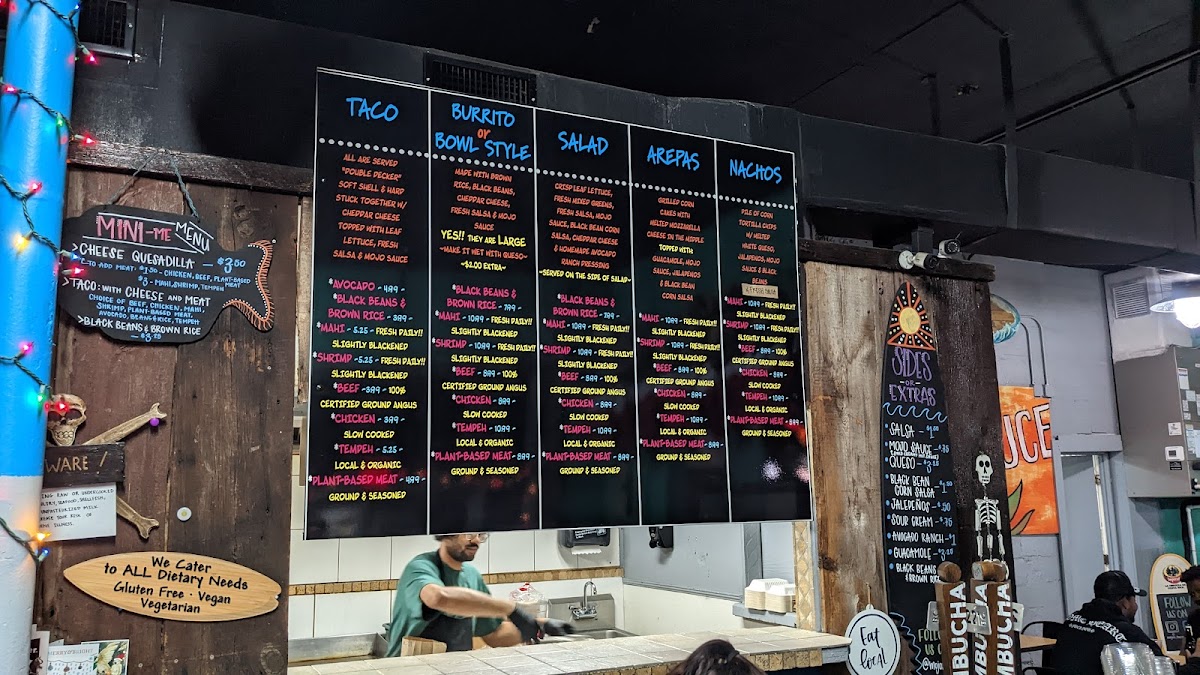 MINI-ME MENU
>CHEESE QUESADILLA — $3.50
CHICKEN, BEEF, PLANT-BASED
MAHI, SHRIMP, TEMPEH MEAT
>TACO: WITH CHEESE AND MEAT
CHOICE OF BEEF, CHICKEN, MAHI,
SHRIMP, PLANT-BASED MEAT,
AVOCADO, BEANS & RICE, TEMPEH
>BLACK BEANS & BROWN RICE
WARE!
We Cater
to ALL Dietary Needs
Gluten Free · Vegan
Vegetarian
TACO
ALL ARE SERVED
"DOUBLE DECKER"
SOFT SHELL & HARD
STUCK TOGETHER W/
CHEPPAR CHEESE
TOPPED WITH LEAF
LETTUCE, FRESH
SALSA & MOJO SAUCE
*AVOCADO - 4.89 -
*BLACK BEANS &
BROWN RICE - 3.89 -
*MAHI - 5.25 - FRESH DAILY!!
SLIGHTLY BLACKENED
*SHRIMP - 5.25 - FRESH DAILY!!
SLIGHTLY BLACKENED
*BEEF - 3.89 - 100%
CERTIFIED GROUND ANGUS
*CHICKEN - 3.89 -
SLOW COOKED
*TEMPEH - 5.25 -
LOCAL & ORGANIC
*PLANT-BASED MEAT - 4.89 -
GROUND & SEASONED
BURRITO
or
BOWL STYLE
MADE WITH BROWN
RICE, BLACK BEANS,
CHEPPAR CHEESE,
FRESH SALSA & MOJO
SAUCE
YES!! THEY ARE LARGE
~MAKE IT WET WITH QUESO~
~$2.00 EXTRA~
*BLACK BEANS &
BROWN RICE - 7.89 -
*MAHI - 10.89 - FRESH DAILY!!
SLIGHTLY BLACKENED
*SHRIMP - 10.89 - FRESH DAILY!!
SLIGHTLY BLACKENED
*BEEF - 8.89 - 100%
CERTIFIED GROUND ANGUS
*CHICKEN - 8.89 -
SLOW COOKED
*TEMPEH - 10.89 -
LOCAL & ORGANIC
*PLANT-BASED MEAT - 8.89 -
GROUND & SEASONED
SALAD
CRISP LEAF LETTUCE,
FRESH MIXED GREENS,
FRESH SALSA, MOJO
SAUCE, BLACK BEAN CORN
SALSA, CHEPPAR CHEESE
& HOMEMADE AVOCADO
RANCH DRESSING
~SERVED ON THE SIDE OF SALAD~
*BLACK BEANS &
BROWN RICE - 7.89 -
*MAHI - 10.89 - FRESH DAILY!!
SLIGHTLY BLACKENED
*SHRIMP - 10.89 - FRESH DAILY!!
SLIGHTLY BLACKENED
*BEEF - 8.89 - 100%
CERTIFIED GROUND ANGUS
*CHICKEN - 8.89 -
SLOW COOKED
*TEMPEH - 10.89 -
LOCAL & ORGANIC
*PLANT-BASED MEAT - 8.89 -
GROUND & SEASONED
AREPAS
GRILLED CORN
CAKES WITH
MELTED MOZZARELLA
CHEESE IN THE MIDDLE
TOPPED WITH
GUACAMOLE, MOJO
SAUCE, JALAPENOS
& BLACK BEAN
CORN SALSA
*MAHI - 10.89 - FRESH DAILY!!
SLIGHTLY BLACKENED
*SHRIMP - 10.89 - FRESH DAILY!!
SLIGHTLY BLACKENED
*BEEF - 8.89 - 100%
CERTIFIED GROUND ANGUS
*CHICKEN - 8.89 -
SLOW COOKED
*TEMPEH - 10.89 -
LOCAL & ORGANIC
*PLANT-BASED MEAT - 8.89 -
GROUND & SEASONED
NACHOS
PILE OF CORN
TORTILLA CHIPS
W/ MELTED
WHITE QUESO,
JALAPENOS, MOJO
SAUCE & BLACK
BEANS
*MAHI - 10.89 - FRESH DAILY!!
SLIGHTLY BLACKENED
*SHRIMP - 10.89 - FRESH DAILY!!
SLIGHTLY BLACKENED
*BEEF - 8.89 - 100%
CERTIFIED GROUND ANGUS
*CHICKEN - 8.89 -
SLOW COOKED
*TEMPEH - 10.89 -
LOCAL & ORGANIC
*PLANT-BASED MEAT - 8.89 -
GROUND & SEASONED
SIDES
OR
EXTRAS
SALSA
MOJO SAUCE
QUESO
BLACK BEAN
CORN SALSA
JALEPEÑOS
SOUR CREAM
AVOCADO RANCH
GUACAMOLE
BLACK BEANS
& BROWN RICE
FOLLOW
US
Eat
local
MBUCHA
MBUCHA
MBUCHA
UCE
FOLLOW
US ON